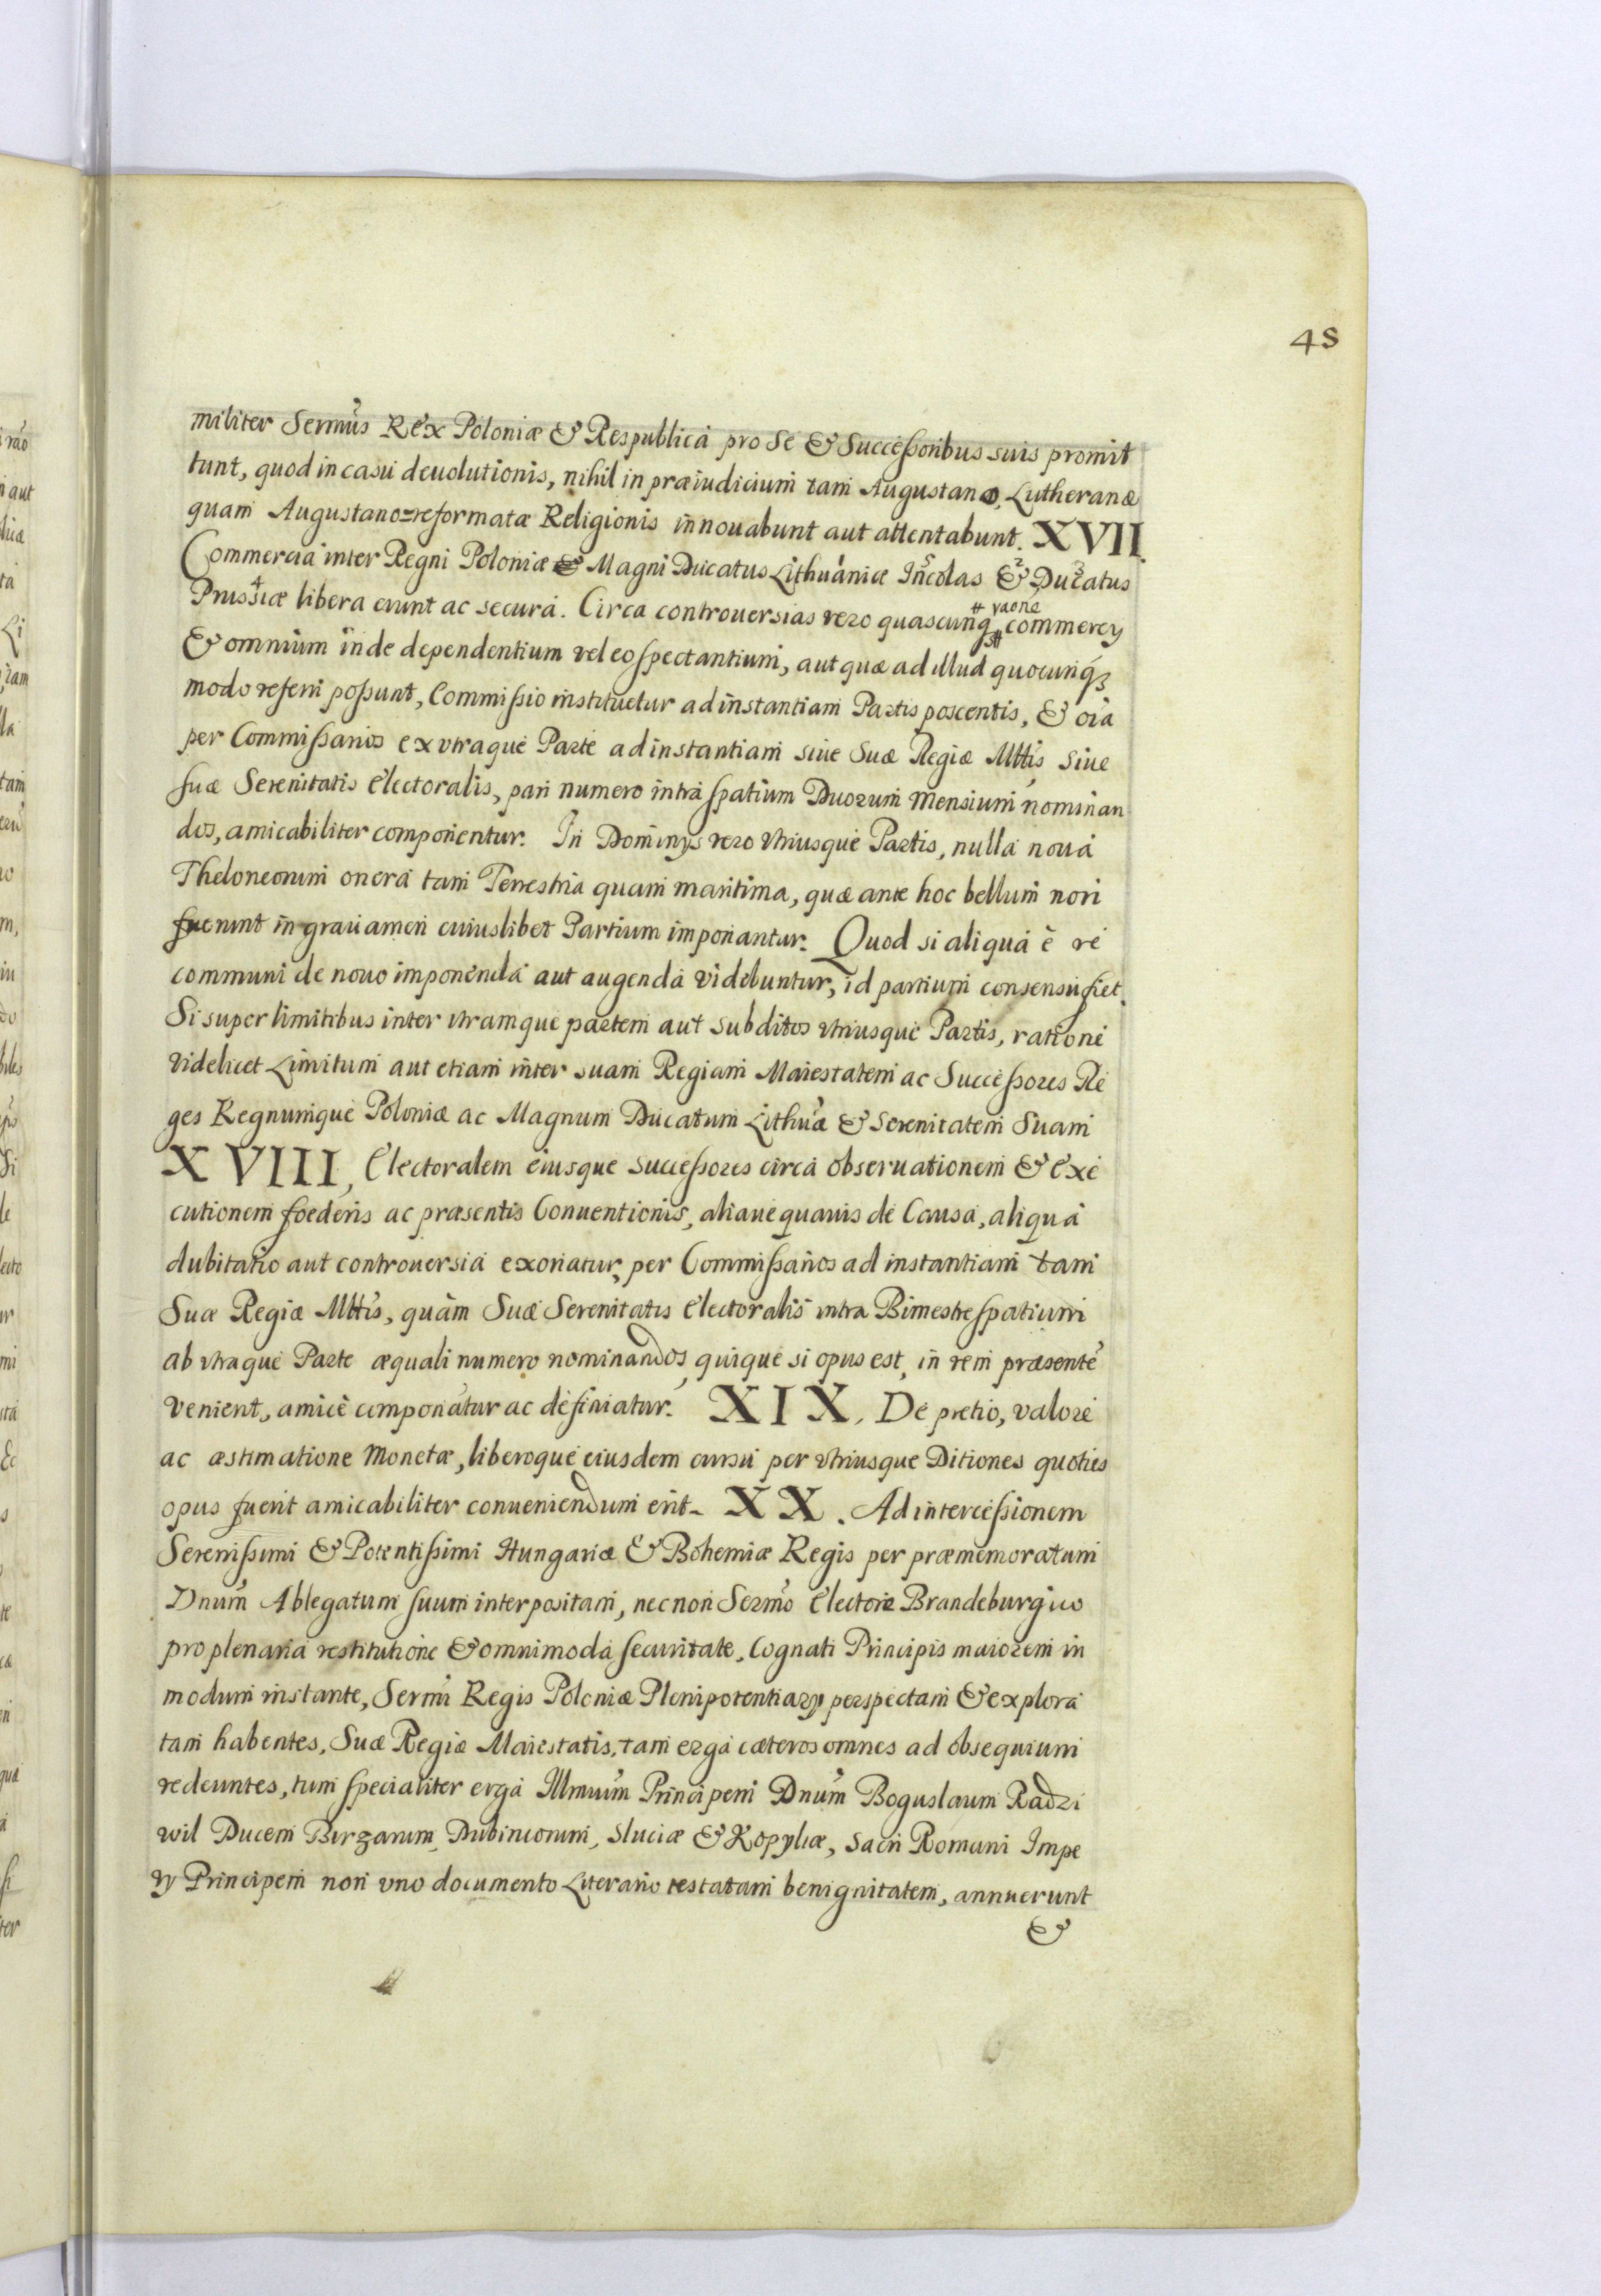 48
militer Sermûs Rex Poloniæ & Respublica pro Se & Successoribus suis promit
tunt, quod in casu deuolutionis, nihil in præiudicium tam Augustano, Lutheranæ
quam Augustano=reformatæ Religionis innouabunt aut attentabunt. XVII.
Commercia inter Regni Poloniæ & Magni Ducatus Lithuaniæ Incolas & Ducatus
Prussiæ libera erunt ac secura. Circa controuersias vero quascunq commercÿ
& omnium inde dependentium vel eo spectantium, aut quæ ad illud quocunq
modo referri possunt, Commissio instituetur ad instantiam Partis poscentis, & oîa
per Commissarios ex vtraque Parte ad instantiam siue Suæ Regiæ Mttis siue
suæ Serenitatis Electoralis, pari numero intra spatium Duorum mensium nominan
dos, amicabiliter componentur. In Dominÿs vero vtriusque Partis, nulla noua
Theloneorum onera tam Terrestria quam maritima, quæ ante hoc bellum non
fuerunt in grauamen cuiuslibet Partium imponantur. Quod si aliqua è re
communi de nouo imponenda aut augenda videbuntur, id partium consensu fiet.
Si super limitibus inter vtramque partem aut subditos vtriusque Partis, ratione
videlicet Limitum aut etiam inter suam Regiam Maiestatem ac Successores Re
ges Regnumque Poloniæ ac Magnum Ducatum Lithuæ & Serenitatem Suam
XVIII, Electoralem eiusque Successores circa obseruationem & exe
cutionem foederis ac præsentis Conuentionis, aliaue quauis de Causa, aliqua
dubitatio aut controuersia exoriatur, per Commissarios ad instantiam tam
Suæ Regiæ Mttis, quàm Suæ Serenitatis Electoralis intra Bimestre spatium
ab vtraque Parte æquali numero nominandos, quique si opus est, in rem præsentê
venient, amicè componatur ac definiatur. XIX. De pretio, valore
ac æstimatione Monetæ, liberoque eiusdem cursu per vtriusque Ditiones quoties
opus fuerit amicabiliter conueniendum erit. XX. Ad intercessionem
Serenissimi & Potentissimi Hungariæ & Bohemiæ Regis per præmemoratum
Dnum Ablegatum suum interpositam, nec non Sermo Electore Brandeburgico
pro plenaria restitutione & omnimoda securitate, Cognati Principis maiorem in
modum instante, Sermi Regis Poloniæ Plenipotentiarÿ perspectam & explora
tam habentes, Suæ Regiæ Maiestatis, tam erga cæteros omnes ad obsequium
redeuntes, tum specialiter erga Illmum Principem Dnum Boguslaum Radzi
wil Ducem Birzarum, Dubincorum, Sluciæ & Kopyliæ, Sacri Romani Impe
rÿ Principem non vno documento Literario testatam benignitatem, annuerunt
&